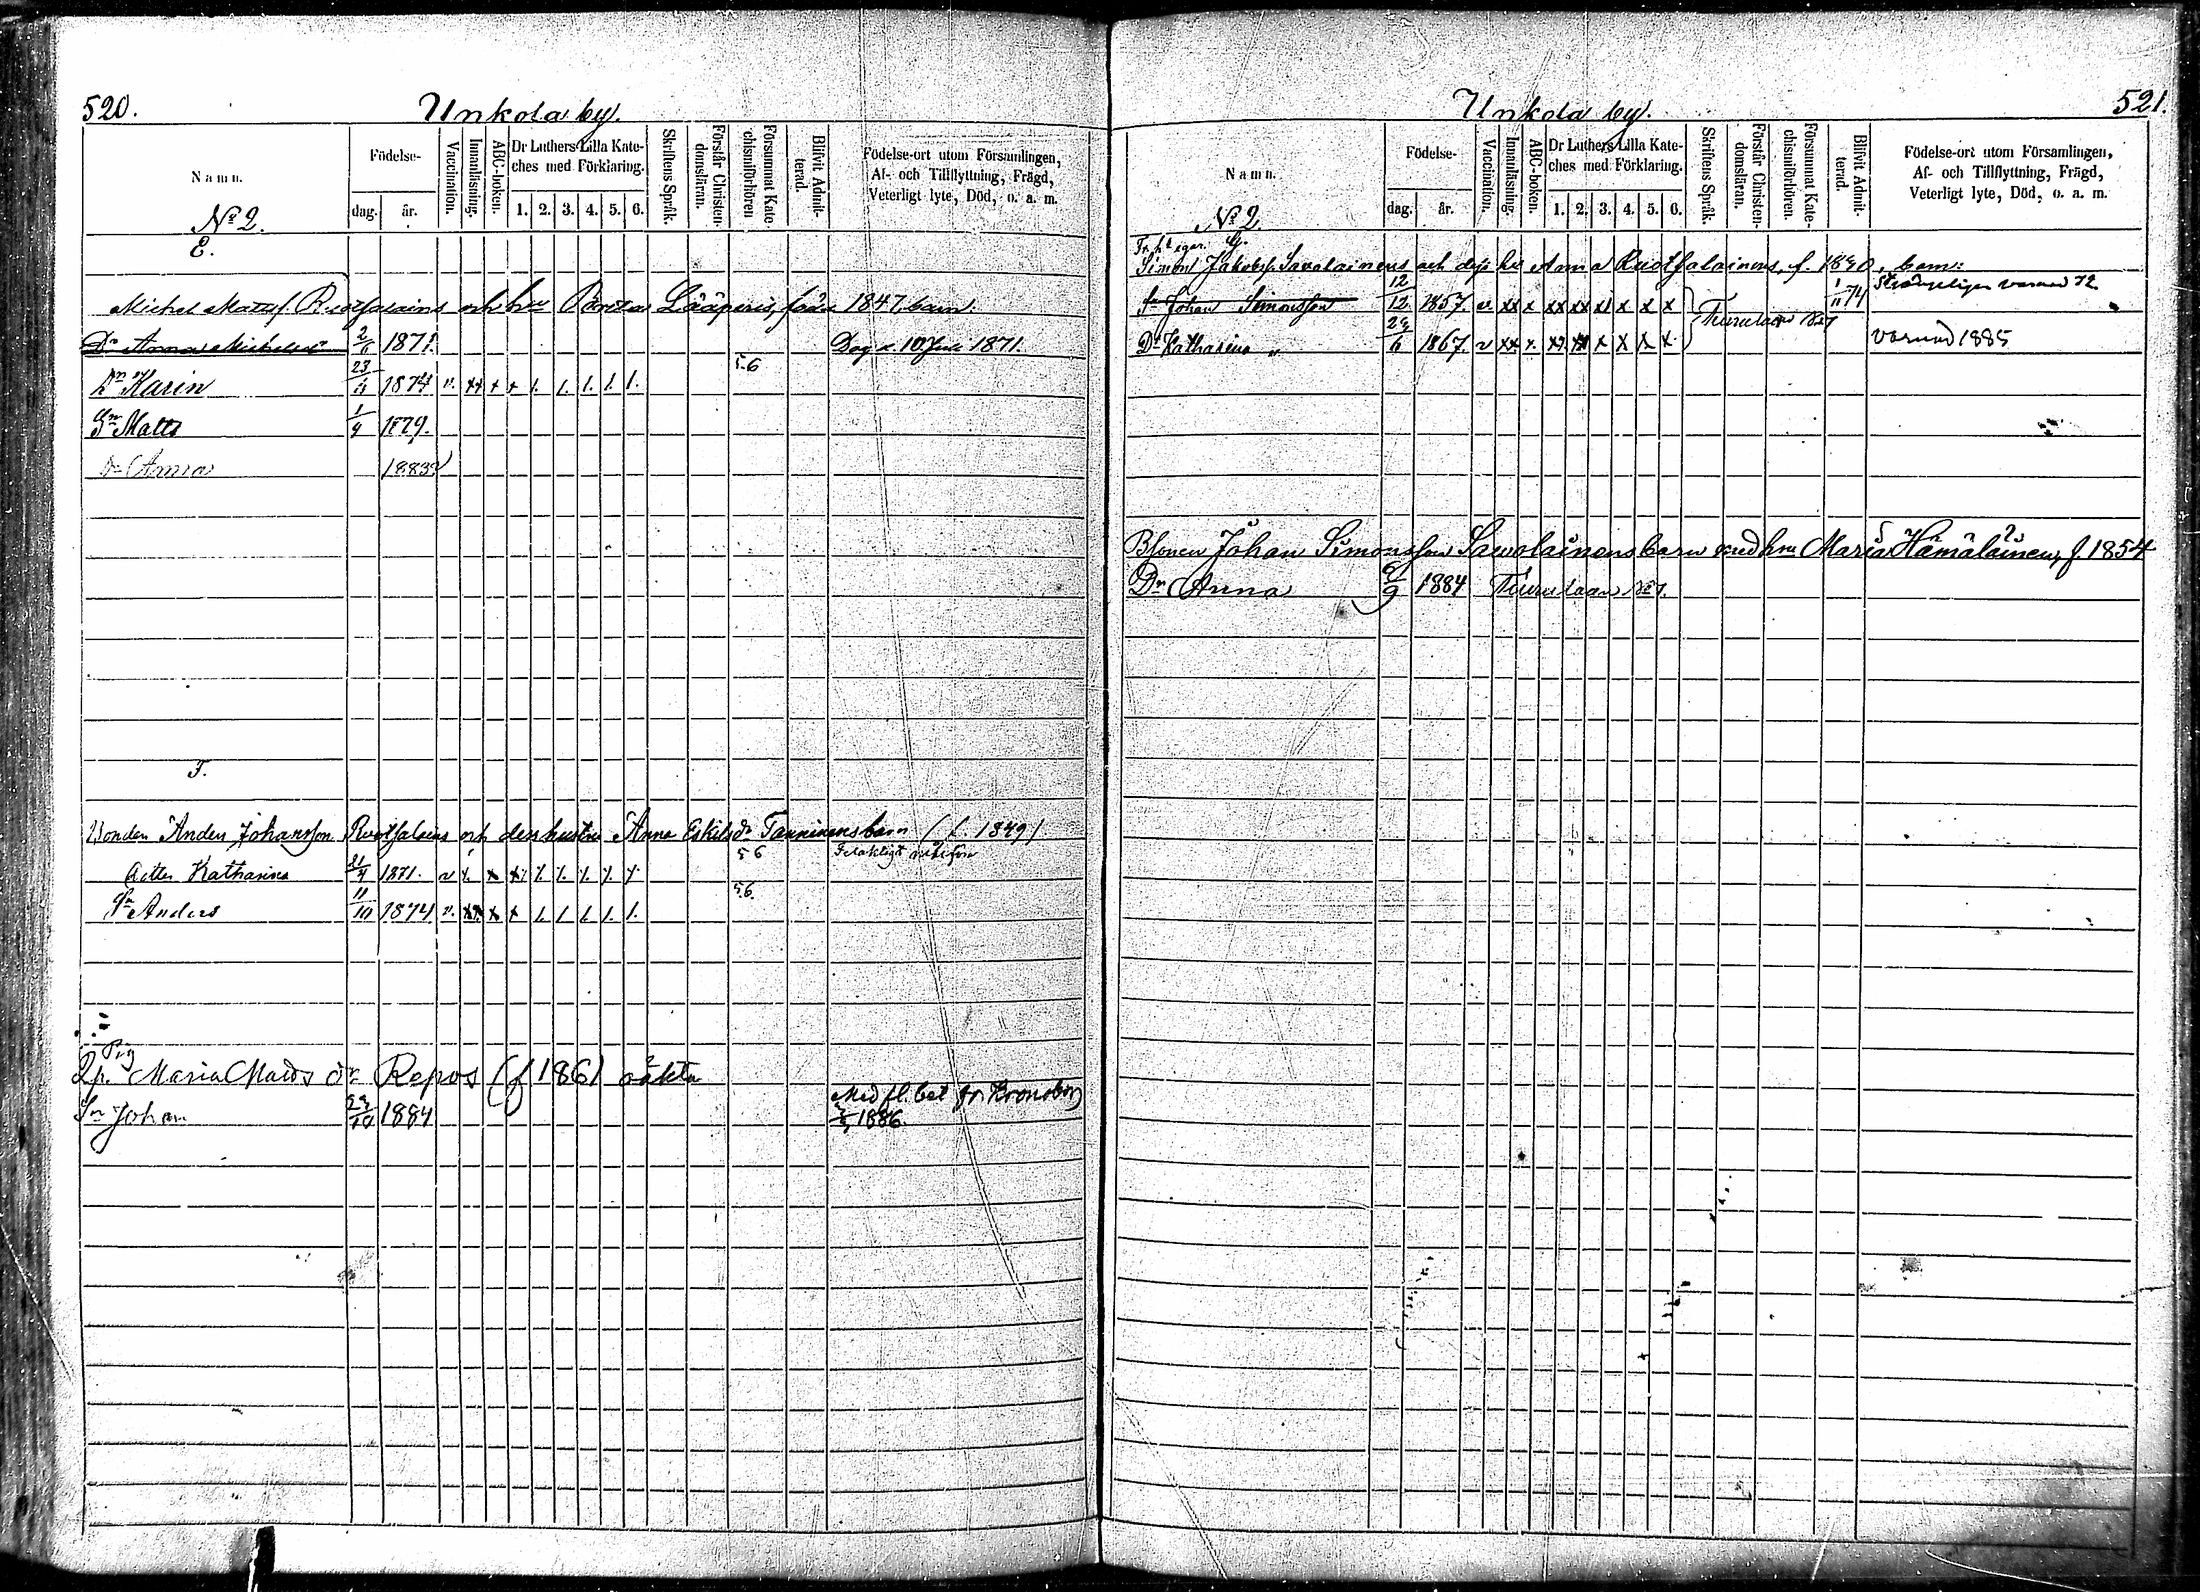 520.
Unkola by.
Namn.
Födelse-
dag.
år.
Vaccination.
Innanläsning.
ABC-boken.
Dr Luthers Lilla Kate-
ches med Förklaring.
1. 2. 3. 4. 5. 6.
Skriftens Språk.
Förstår Christen-
domsläran.
Försummat Kate-
chismiförhören
Blifvit Admit-
terad.
Födelse-ort utom Församlingen,
Af- och Tillflyttning, Frägd,
Veterligt lyte, Död, o. a. m.
No 2.
E.
Michel Mattsf. Ruotsalains och hu Lääperis, 1847, barn.
Dr Anna Michelsdr 2/6 1871. Dog d. 10 Juli 1871.
Dr Karin 23/11 1874 v. xx x x 1. 1. 1. 1. 1. 56
Sn Matts 1/4 1879.
Dr Anna 1883
F.
Bonden Anders Johansson Ruotsalains och dess hustru Anna Eskilsdr Tanninens barn (f. 1849)
dotter Katharina 21/4 1871. v x x x x x x x x 56
Sn Anders 11/10 1874 v. xx x x 1. 1. 1. 1. 1. 56.
Pig
Maria Matsdr Repos (f 1861 oäkta
Sn Johan 1884 Med fl. bet för Kronoborg
1886.
521.
Unkola by.
Namn.
Födelse-
dag.
år.
Vaccination.
Innanläsning.
ABC-boken.
Dr Luthers Lilla Kate-
ches med Förklaring.
1. 2. 3. 4. 5. 6.
Skriftens Språk.
Förstår Christen-
domsläran.
Försummat Kate-
chismiförhören.
Blifvit Admit-
terad.
Födelse-ort utom Församlingen,
Af- och Tillflyttning, Frägd,
Veterligt lyte, Död, o. a. m.
No 2.
G.
Simon Jakobsf. Savolainens och dess hu Anna Ruotsalainens, f. 1830, barn:
Sn Johan Simonsson 12/12 1857. v. xx x xx xx x x x x 1/11 74 varnad 72
Dr Katharina „ 23/6 1867. v xx x. x x x x x x. varnad 1885
Bsonen Johan Simonsson Sawolainens barn med hu Maria Hämäläinen, f. 1854
Dr Anna 9/9 1884